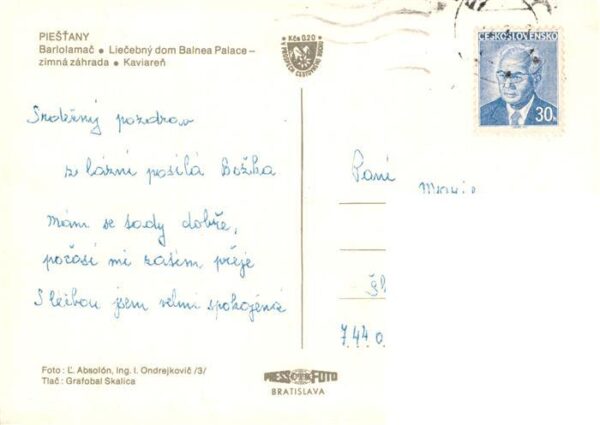 PIEŠŤANY
Bartolamač • Liečebný dom Balnea Palace –
zimná záhrada • Kaviareň
Kčs 0,20
ČESKOSLOVENSKO
30h
Srdečný pozdrav
z lázní posílá Božka
mám se tady dobře,
počasí mi zatím přeje
S léčbou jsem velmi spokojená
Paní
744 0
Foto: Ľ. Absolón, Ing. I. Ondrejkovič /3/
Tlač: Grafobal Skalica
PRESSFOTO
BRATISLAVA